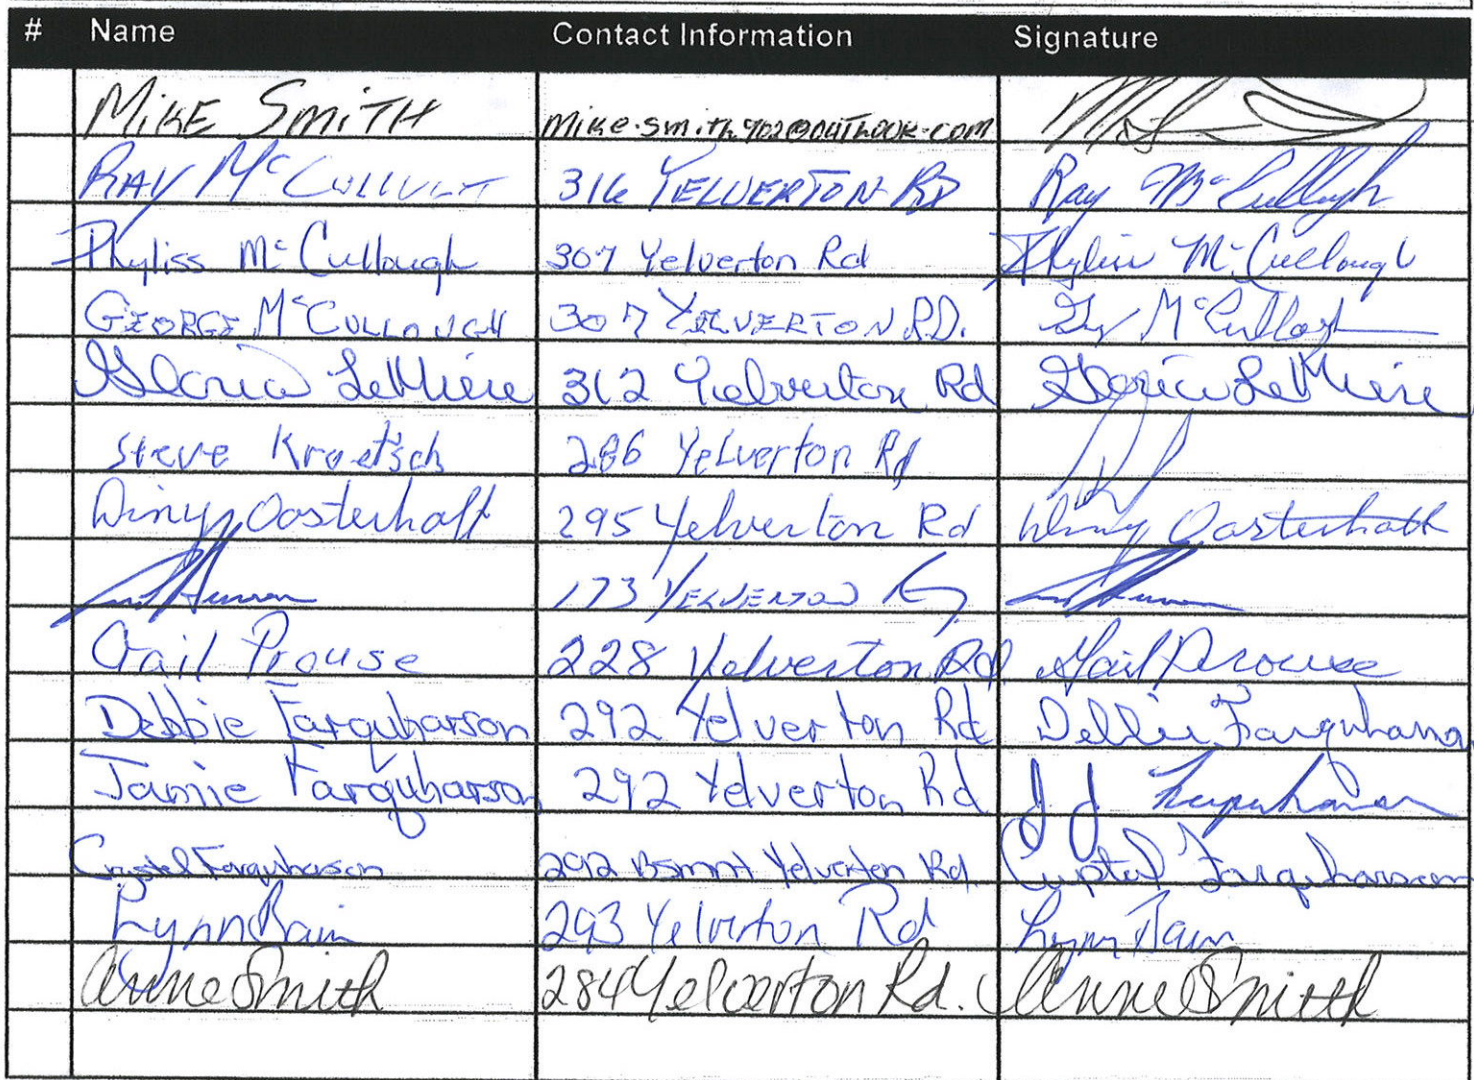 # Name Contact Information Signature
MIKE SMITH mike.smith902@outlook.com
RAY McCULLUGH 316 YELVERTON RD Ray McCullugh
Phyliss McCullough 307 Yelverton Rd Phyliss McCullough
GEORGE McCULLOUGH 307 YELVERTON RD. McCullough
Gloria LeMiere 312 Yelverton Rd Gloria LeMiere
Steve Kroetsch 286 Yelverton Rd
Diny Oosterhoff 295 Yelverton Rd Diny Oosterhoff
173 YELVERTON
Gail Prouse 228 Yelverton Rd Gail Prouse
Debbie Farquharson 292 Yelverton Rd Debbie Farquharson
Jamie Farquharson 292 Yelverton Rd J J Farquharson
Crystal Farquharson 292 Bsmnt Yelverton Rd Crystal Farquharson
Lynn Bain 293 Yelverton Rd Lynn Bain
Anne Smith 284 Yelverton Rd. Anne Smith